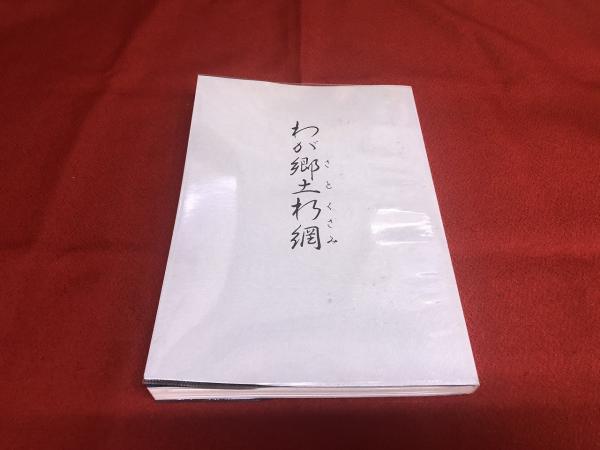 わが郷土朽網
さとくさみ